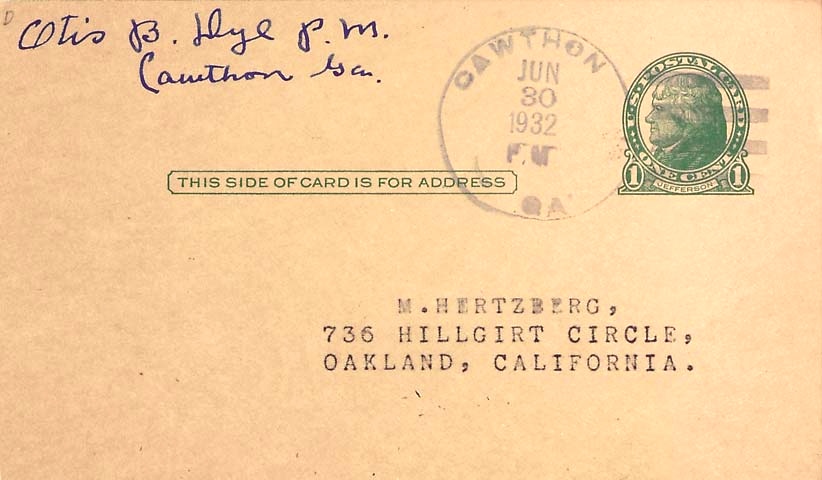 D
Otis B. Dyl P.M.
Cawthon Ga.
CAWTHON
JUN
30
1932
P.M
GA
U.S. POSTAL CARD
ONE CENT
1 JEFFERSON 1
THIS SIDE OF CARD IS FOR ADDRESS
M.HERTZBERG,
736 HILLGIRT CIRCLE,
OAKLAND, CALIFORNIA.